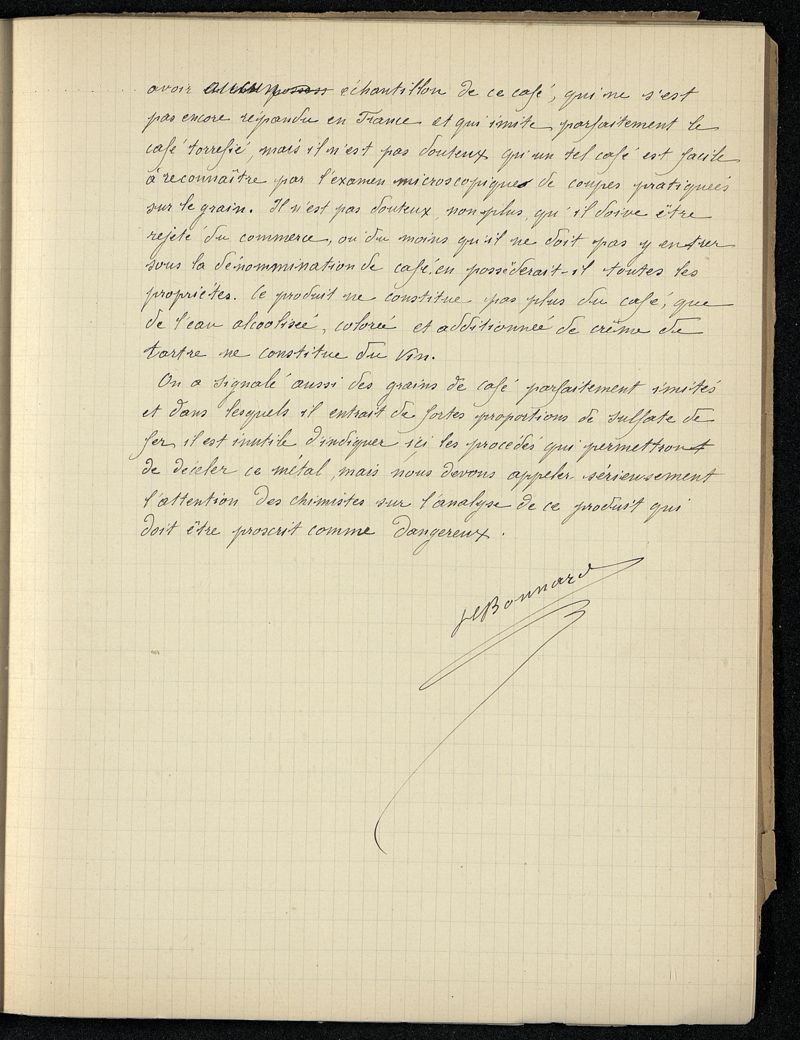 avoir aucun échantillon de ce café, qui ne s'est
pas encore répandu en France et qui imite parfaitement le
café torréfié, mais il n'est pas douteux qu'un tel café est facile
à reconnaître par l'examen microscopique de coupes pratiqueés
sur le grain. Il n'est pas douteux, non plus, qu'il doive être
rejeté du commerce, ou du moins qu'il ne doit pas y entrer
sous la dénommination de café, en possèderait-il toutes les
propriétés. Ce produit ne constitue pas plus du café, que
de l'eau alcooliseé, coloreé et additionneé de crême de
tartre ne constitue du vin.
On a signalé aussi des grains de café parfaitement imités
et dans lesquels il entrait de fortes proportions de sulfate de
fer, il est inutile d'indiquer içi les procédés qui permettront
de déceler ce métal, mais nous devons appeler sérieusement
l'attention des chimistes sur l'analyse de ce produit qui
doit être proscrit comme dangereux.
Bonnard